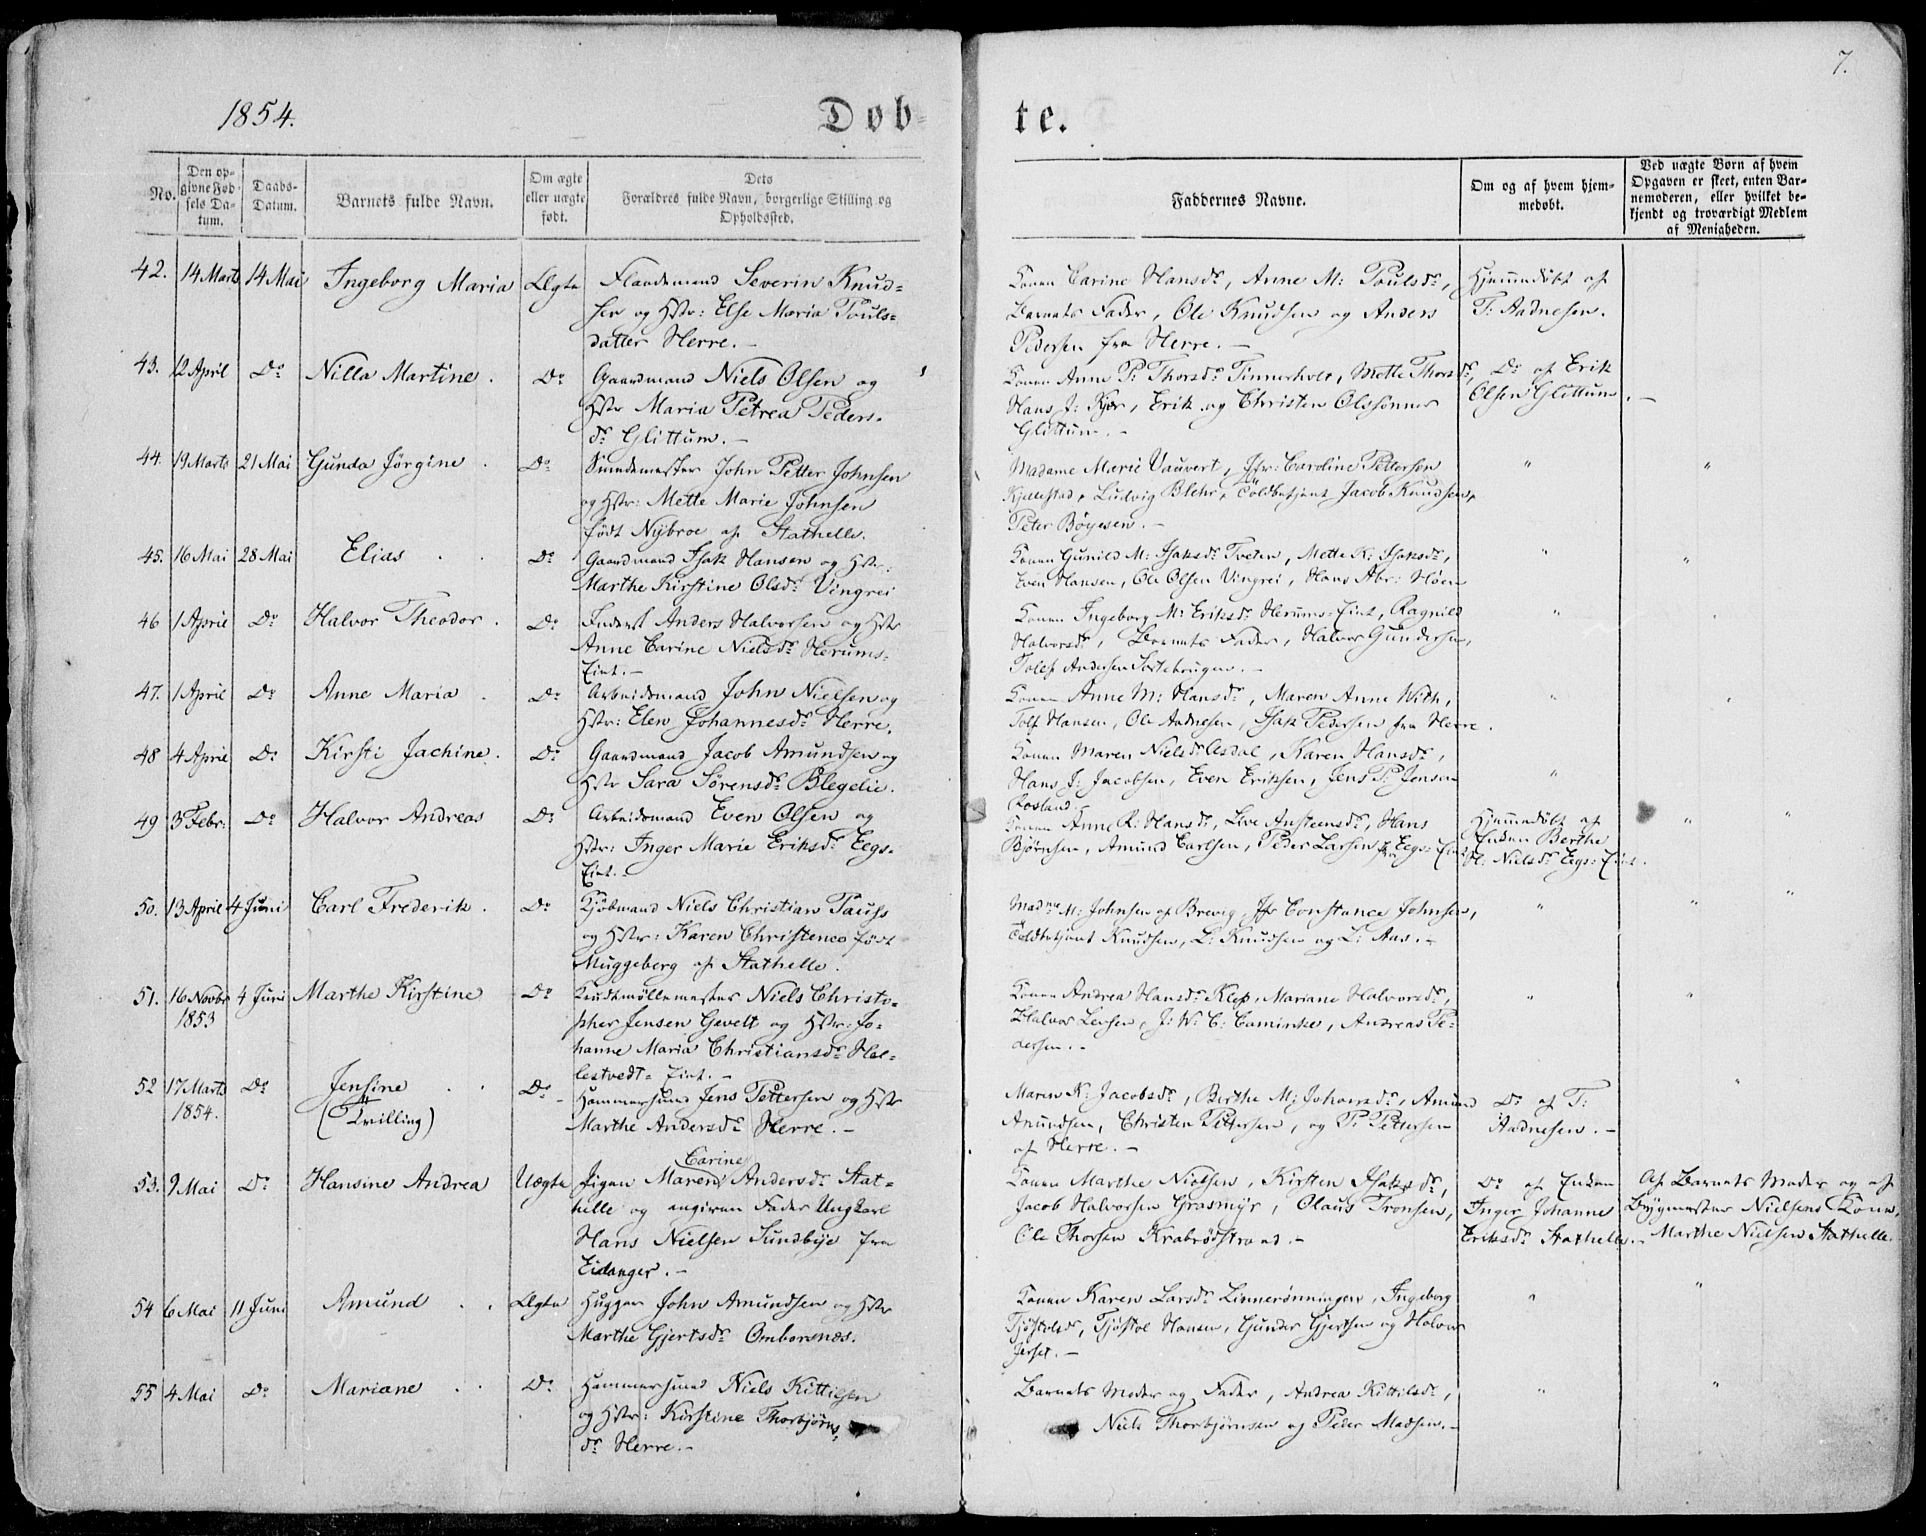 7.
1854.
Døb-
te.
No.
Den op-
givne Fød-
sels Da-
tum.
Daabs-
Datum.
Barnets fulde Navn.
Om ægte
eller uægte
født.
Dets
Forældres fulde Navn, borgerlige Stilling og
Opholdssted.
Faddernes Navne.
Om og af hvem hjem-
medøbt.
Ved uægte Børn af hvem
Opgaven er skeet, enten Bar-
nemoderen, eller hvilket be-
kjendt og troværdigt Medlem
af Menigheden.
42. 14 Marts 14 Mai Ingeborg Maria Ægte Severin Knud-
sen og Hstr: Else Maria Pouls-
datter Herre.-
Konen Carine Hansdr, Anne M: Poulsdr,
Barnets Fader, Ole Knudsen og Anders
Pedersen fra Herre.-
Hjemmedøbt af
T: Aadnesen.
43. 12 April Do Nilla Martine. Do Gaardmand Niels Olsen og
Hstr Maria Petrea Peders-
dr Glittum.-
Konen Anne P: Thorsdr Tinnerholt, Mette Thorsdr,
Hans J: Kjær, Erik og Christen Olssønner
Glittum.-
Do af Erik
Olsen Glittum.-
44. 19 Marts 21 Mai Gunda Jørgine. Do Smedemester John Petter Johnsen
og Hstr: Mette Marie Johnsen
født Nybroe af Stathelle.
Madame Marie Vauvert, Jfr: Caroline Pettersen
Kjellestad, Ludvig Blehr, Toldbetjent Jacob Knudsen,
Peter Bøyesen.-
" "
45. 16 Mai 28 Mai Elias Do Gaardmand Isak Hansen og Hstr:
Marthe Kirstine Olsdr Vingrei
Konen Gunild M: Isaksdr Tveten, Mette K: Isaksdr,
Even Hansen, Ole Olsen Vingrei, Hans Abr: Høen
" "
46 1 April Do Halvor Theodor. Do Anders Halvorsen og Hstr
Anne Carine Nielsdr Herums-
Eiet.-
Konen Ingeborg M: Eriksdr Herums-Eiet, Ragnild
Halvorsdr, Barnets Fader, Halvor Gundersen,
Tolef Andersen
"
47. 1 April Do Anne Maria. Do Arbeidsmand John Nielsen og
Hstr: Elen Johannesdr Herre.
Konen Anne M: Hansdr, Maren Anne With,
Tolf Hansen, Ole Aadnesen, Isak Pedersen fra Herre.
" "
48 4 April Do Kirsti Jachine. Do Gaardmand Jacob Amundsen og
Hstr Sara Sørensdr Blegelie.
Konen Maren Nielsdr Asdal, Karen Hansdr,
Hans J: Jacobsen, Even Eriksen, Jens P: Jensen
Rosland.
"
49 3 Febr: Do Halvor Andreas Do Arbeidsmand Even Olsen og
Hstr: Inger Marie Eriksdr Eegs-
Eiet.-
Konen Anne K: Hansdr, Live Anstensdr, Hans
Bjørnsen, Amund Carlsen, Peder Larsen fra Eegs-Eiet
Hjemmedøbt af
Enken Berthe
M: Nielsdr Eegs-Eiet.
" "
50. 13 April 4 Juni Carl Frederik. Do Kjøbmand Niels Christian Pauss
og Hstr: Karen Christence født
Muggeberg af Stathelle.
Madme M: Johnsen af Brevig, Jfr Constance Johnsen,
Toldbetjent Knudsen, L: Knudsen og L: Aas.-
" " "
51. 16 Novbr
1853 4 Juni Marthe Kirstine Do Niels Christo-
pher Jensen Gevelt og Hstr: Jo-
hanne Maria Christiansdr Hel-
lestvedt-Eiet.-
Konen Andrea Hansdr Klep, Mariane Halvorsdr,
Halvor Larsen, J: W: C: Andreas Pe-
dersen.-
" "
52 17 Marts
1854. Do Jensine
(Tvilling) Do Hammersmed Jens Pettersen og Hstr
Marthe Andersdr Herre.-
Maren K: Jacobsdr, Berthe M: Johansdr, Amund
Amundsen, Christen Pettersen, og P: Pettersen
af Herre.-
Do af T:
Aadnesen.-
"
53. 9 Mai Do Hansine Andrea Uægte Pigen Maren Carine Andersdr Stat-
helle og angiven Fader Ungkarl
Hans Nielsen Sundbye fra
Eidanger.-
Konen Marthe Nielsen, Kirsten Isaksdr,
Jacob Halvorsen Grasmyr, Olaus Tronsen,
Ole Thorsen Krabrødstrand.-
Do af Enken
Inger Johanne
Eriksdr Stathelle.-
Af Barnets Moder og af
Bygmester Nielsens Kone
Marthe Nielsen Stathelle.
54 6 Mai 11 Juni Amund Ægte Hugger John Amundsen og Hstr
Marthe Gjertsdr Omborsnæs.
Konen Karen Larsdr Linnerønningen, Ingeborg
Tjøstelsdr, Tjøstol Hansen, Gunder Gjertsen og Halvor
Jerset.-
" "
55 4 Mai Do Mariane Do Hammersmed Niels Kittilsen
og Hstr: Kirstine Thorbjørns-
dr Herre.-
Barnets Moder og Fader, Andrea Kittilsdr,
Niels Thorbjørnsen og Peder Madsen.-
" "